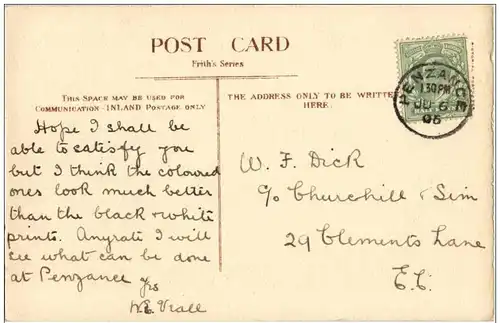 POST CARD
Frith's Series
THIS SPACE MAY BE USED FOR
COMMUNICATION - INLAND POSTAGE ONLY
THE ADDRESS ONLY TO BE WRITTEN
HERE.
PENZANCE
1 30 PM
6
Hope I shall be
able to satisfy you
but I think the coloured
ones look much better
than the black & white
prints. Anyrate I will
see what can be done
at Penzance
Yrs
W. F. Dick
c/o Churchill & Sim
29 Clements Lane
E.C.